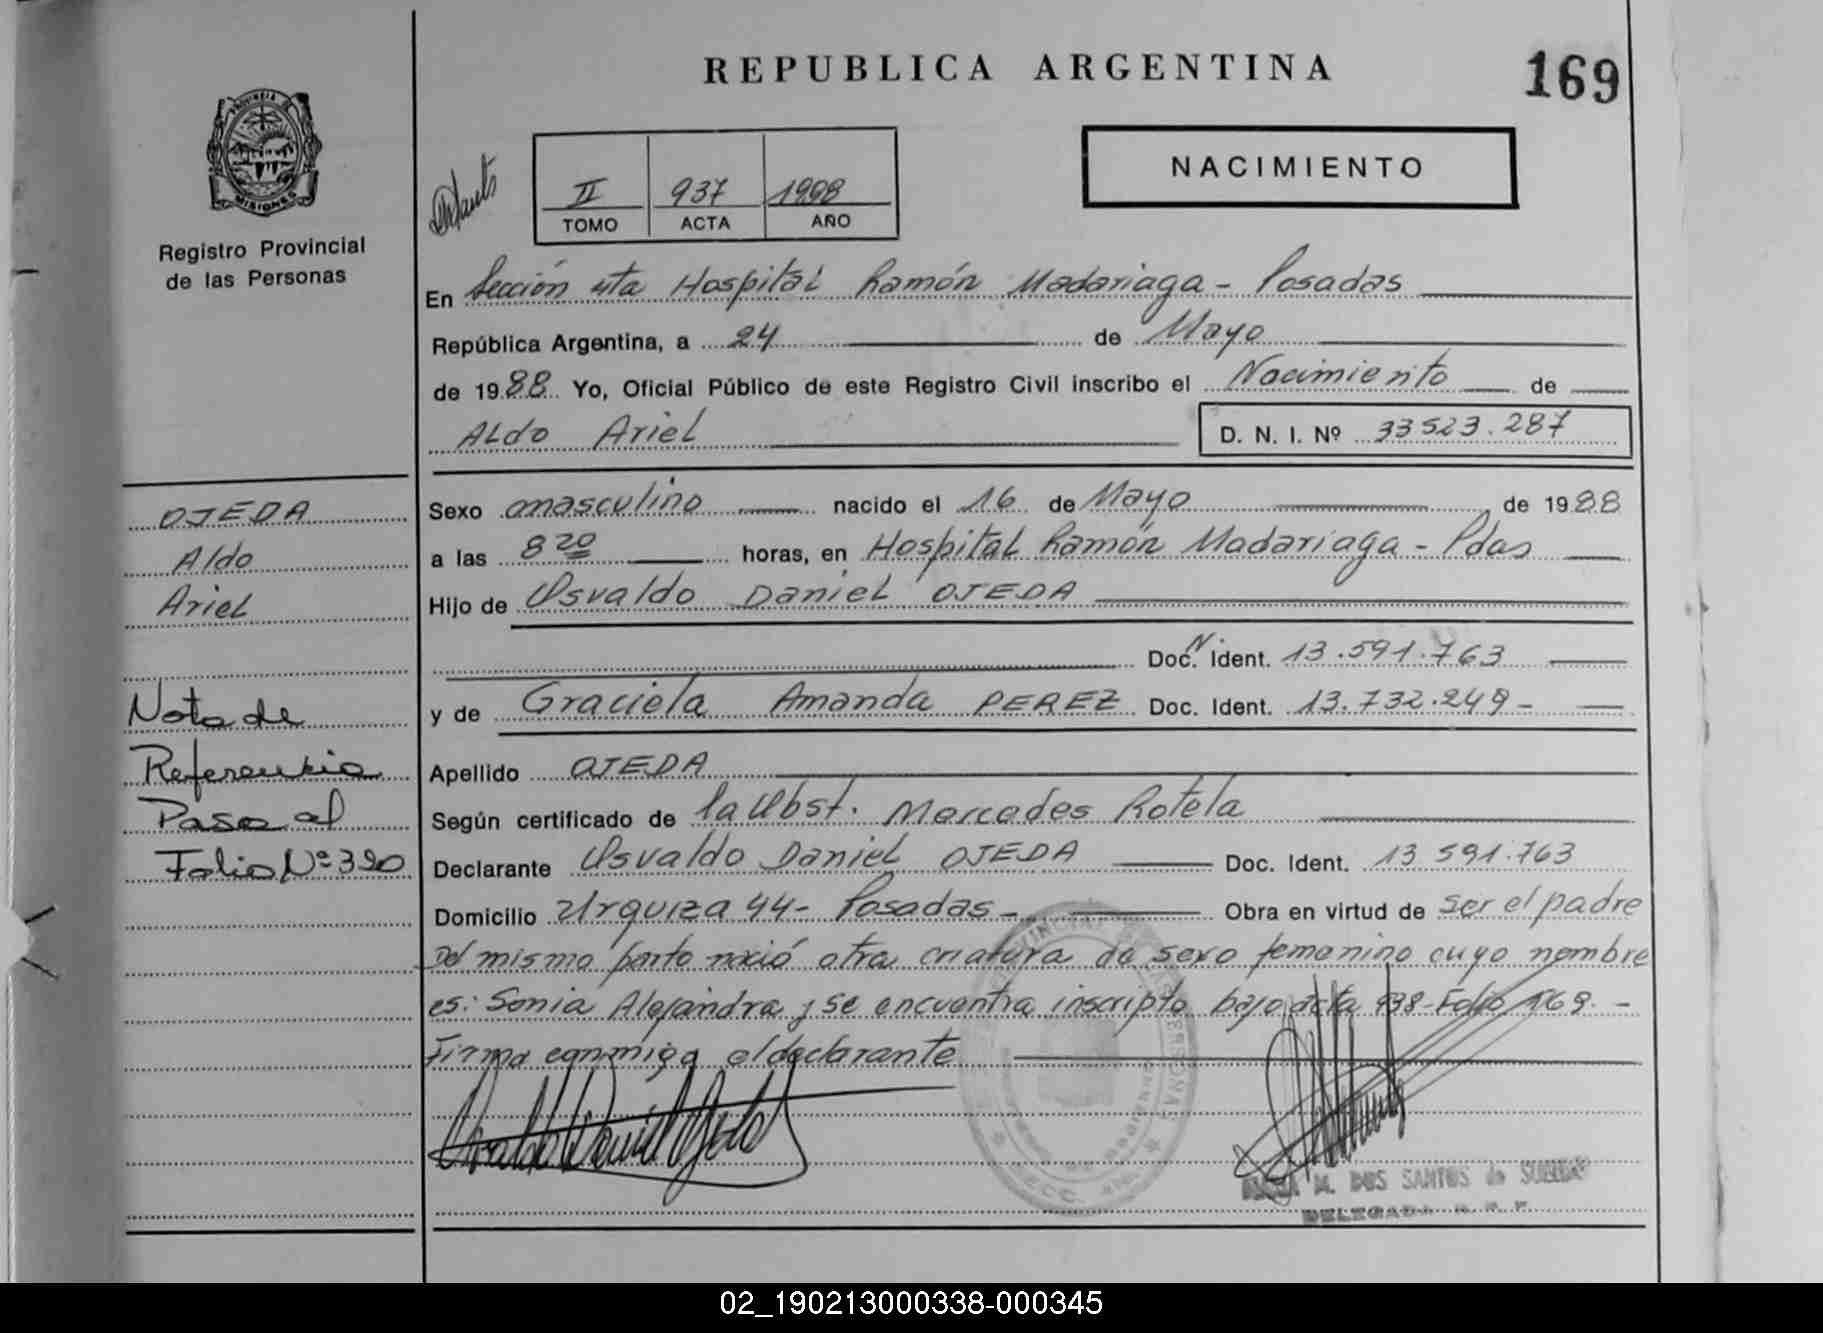 REPUBLICA ARGENTINA
169
PROVINCIA DE
MISIONES
Registro Provincial
de las Personas
NACIMIENTO
II 937 1988
TOMO ACTA AÑO
En Sección 4ta Hospital Ramón Madariaga - Posadas
República Argentina, a 24 de Mayo
de 1988 Yo, Oficial Público de este Registro Civil inscribo el Nacimiento de
Aldo Ariel D. N. I. Nº 33523.287
OJEDA
Aldo
Ariel
Nota de
Referencia
Pasa al
Folio Nº 390
Sexo masculino nacido el 16 de Mayo de 1988
a las 8 20 horas, en Hospital Ramón Madariaga - Pdas
Hijo de Osvaldo Daniel OJEDA
Doc. N. Ident. 13.591.763
y de Graciela Amanda PEREZ Doc. Ident. 13.732.249-
Apellido OJEDA
Según certificado de la Obst. Mercedes Rotela
Declarante Osvaldo Daniel OJEDA Doc. Ident. 13 591.763
Domicilio Urquiza 44- Posadas - Obra en virtud de ser el padre
Del mismo parto nació otra criatura de sexo femenino cuyo nombre
es: Sonia Alejandra y se encuentra inscripto bajo acta 938-Folio 169. -
Firma conmigo el declarante
M. DOS SANTOS de
DELEGADA
02_190213000338-000345